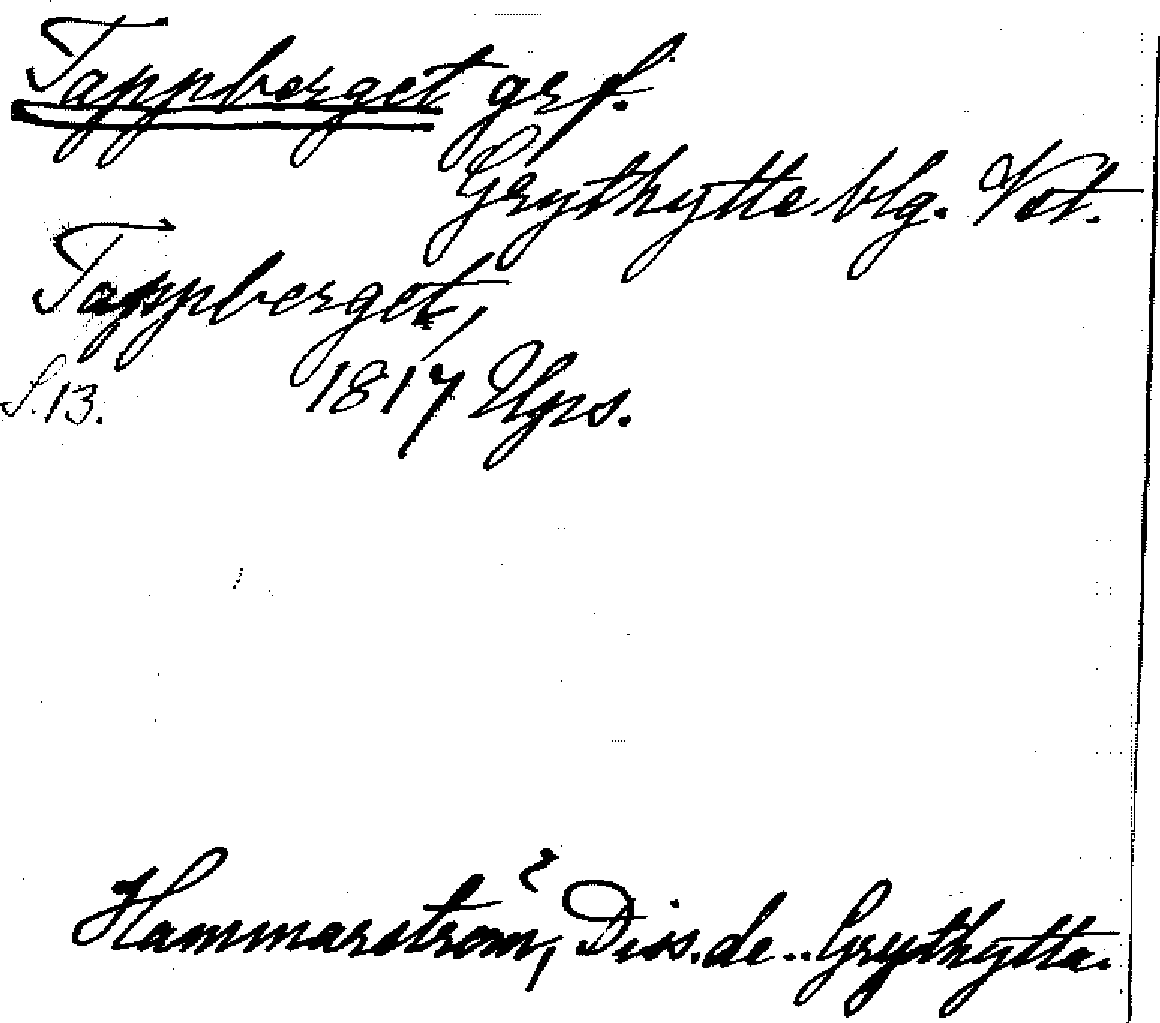 Tappberget grf.
Grythytte blg. Vst.
Tappberget,
S. 13. 1817 Ups.
Hammarström, Diss. de .. Grythytta.